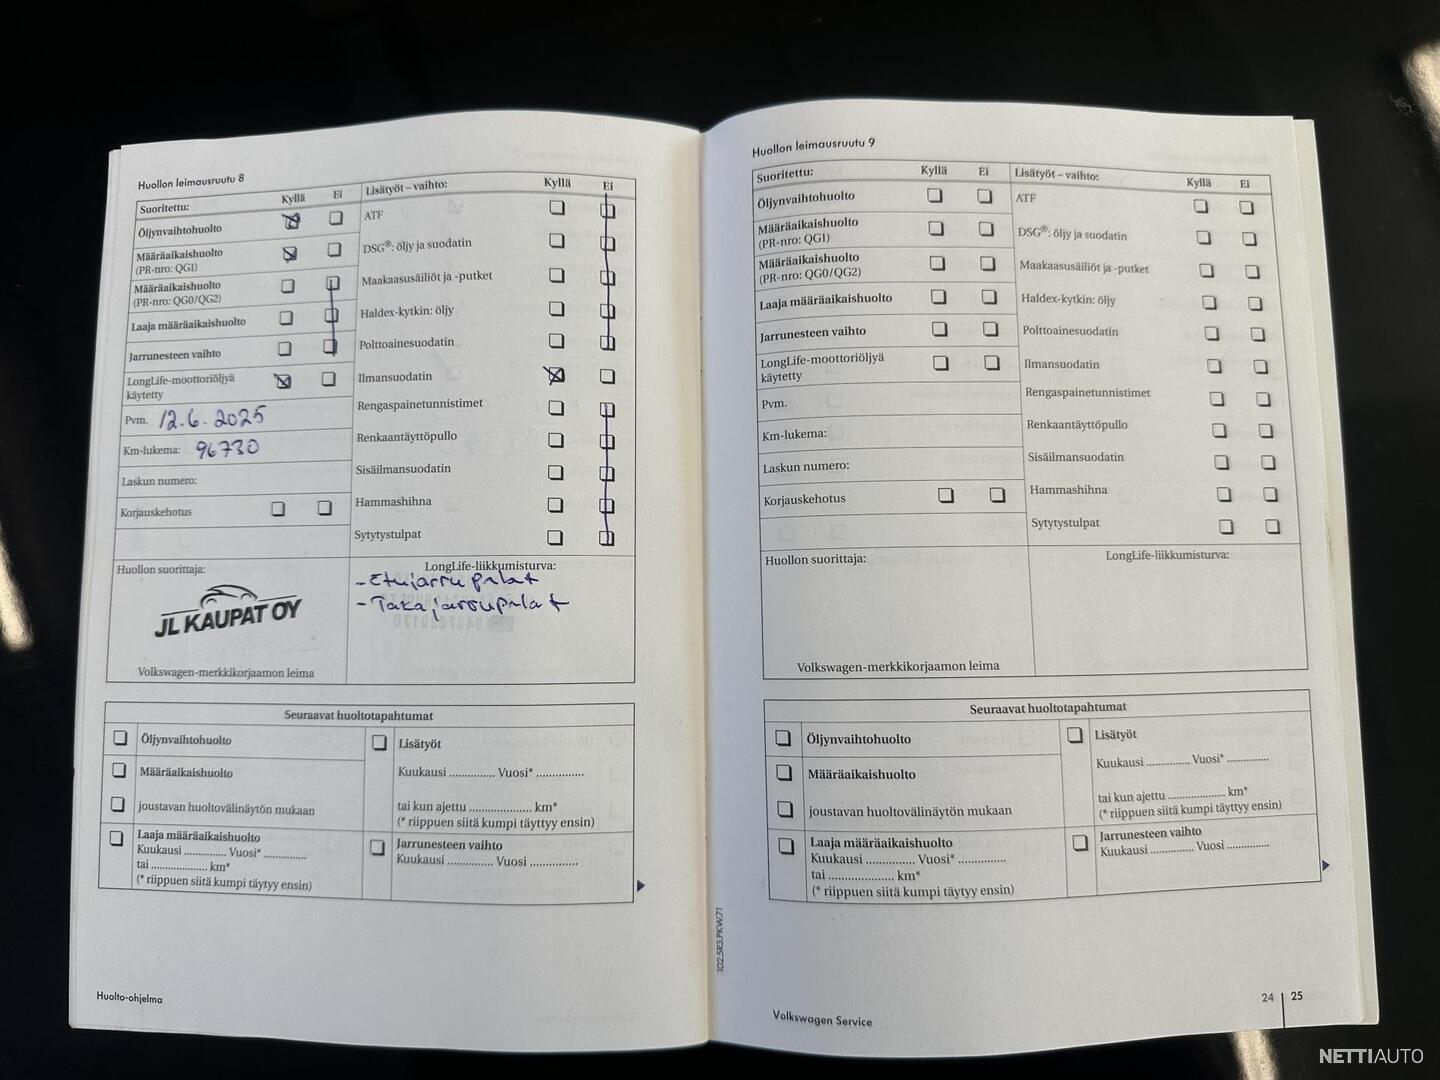 Huollon leimausruutu 8
Suoritettu: Kyllä Ei
Öljynvaihtohuolto
Määräaikaishuolto
(PR-nro: QG1)
Määräaikaishuolto
(PR-nro: QG0/QG2)
Laaja määräaikaishuolto
Jarrunesteen vaihto
LongLife-moottoriöljyä
käytetty
Pvm. 12.6.2025
Km-lukema: 96730
Laskun numero:
Korjauskehotus
Lisätyöt – vaihto: Kyllä Ei
ATF
DSG®: öljy ja suodatin
Maakaasusäiliöt ja -putket
Haldex-kytkin: öljy
Polttoainesuodatin
Ilmansuodatin
Rengaspainetunnistimet
Renkaantäyttöpullo
Sisäilmansuodatin
Hammashihna
Sytytystulpat
Huollon suorittaja:
JL KAUPAT OY
Volkswagen-merkkikorjaamon leima
LongLife-liikkumisturva:
- Etujarrupalat
- Takajarrupalat
Seuraavat huoltotapahtumat
Öljynvaihtohuolto
Määräaikaishuolto
joustavan huoltovälinäytön mukaan
Laaja määräaikaishuolto
Kuukausi .............. Vuosi* ..............
tai .................... km*
(* riippuen siitä kumpi täytyy ensin)
Lisätyöt
Kuukausi .............. Vuosi* ..............
tai kun ajettu .................. km*
(* riippuen siitä kumpi täytyy ensin)
Jarrunesteen vaihto
Kuukausi .............. Vuosi ..............
Huolto-ohjelma
Huollon leimausruutu 9
Suoritettu: Kyllä Ei
Öljynvaihtohuolto
Määräaikaishuolto
(PR-nro: QG1)
Määräaikaishuolto
(PR-nro: QG0/QG2)
Laaja määräaikaishuolto
Jarrunesteen vaihto
LongLife-moottoriöljyä
käytetty
Pvm.
Km-lukema:
Laskun numero:
Korjauskehotus
Lisätyöt – vaihto: Kyllä Ei
ATF
DSG®: öljy ja suodatin
Maakaasusäiliöt ja -putket
Haldex-kytkin: öljy
Polttoainesuodatin
Ilmansuodatin
Rengaspainetunnistimet
Renkaantäyttöpullo
Sisäilmansuodatin
Hammashihna
Sytytystulpat
Huollon suorittaja:
Volkswagen-merkkikorjaamon leima
LongLife-liikkumisturva:
Seuraavat huoltotapahtumat
Öljynvaihtohuolto
Määräaikaishuolto
joustavan huoltovälinäytön mukaan
Laaja määräaikaishuolto
Kuukausi .............. Vuosi* ..............
tai .................... km*
(* riippuen siitä kumpi täytyy ensin)
Lisätyöt
Kuukausi .............. Vuosi* ..............
tai kun ajettu .................. km*
(* riippuen siitä kumpi täytyy ensin)
Jarrunesteen vaihto
Kuukausi .............. Vuosi ..............
102.5R3.PKW.71
Volkswagen Service
24 25
NETTIAUTO